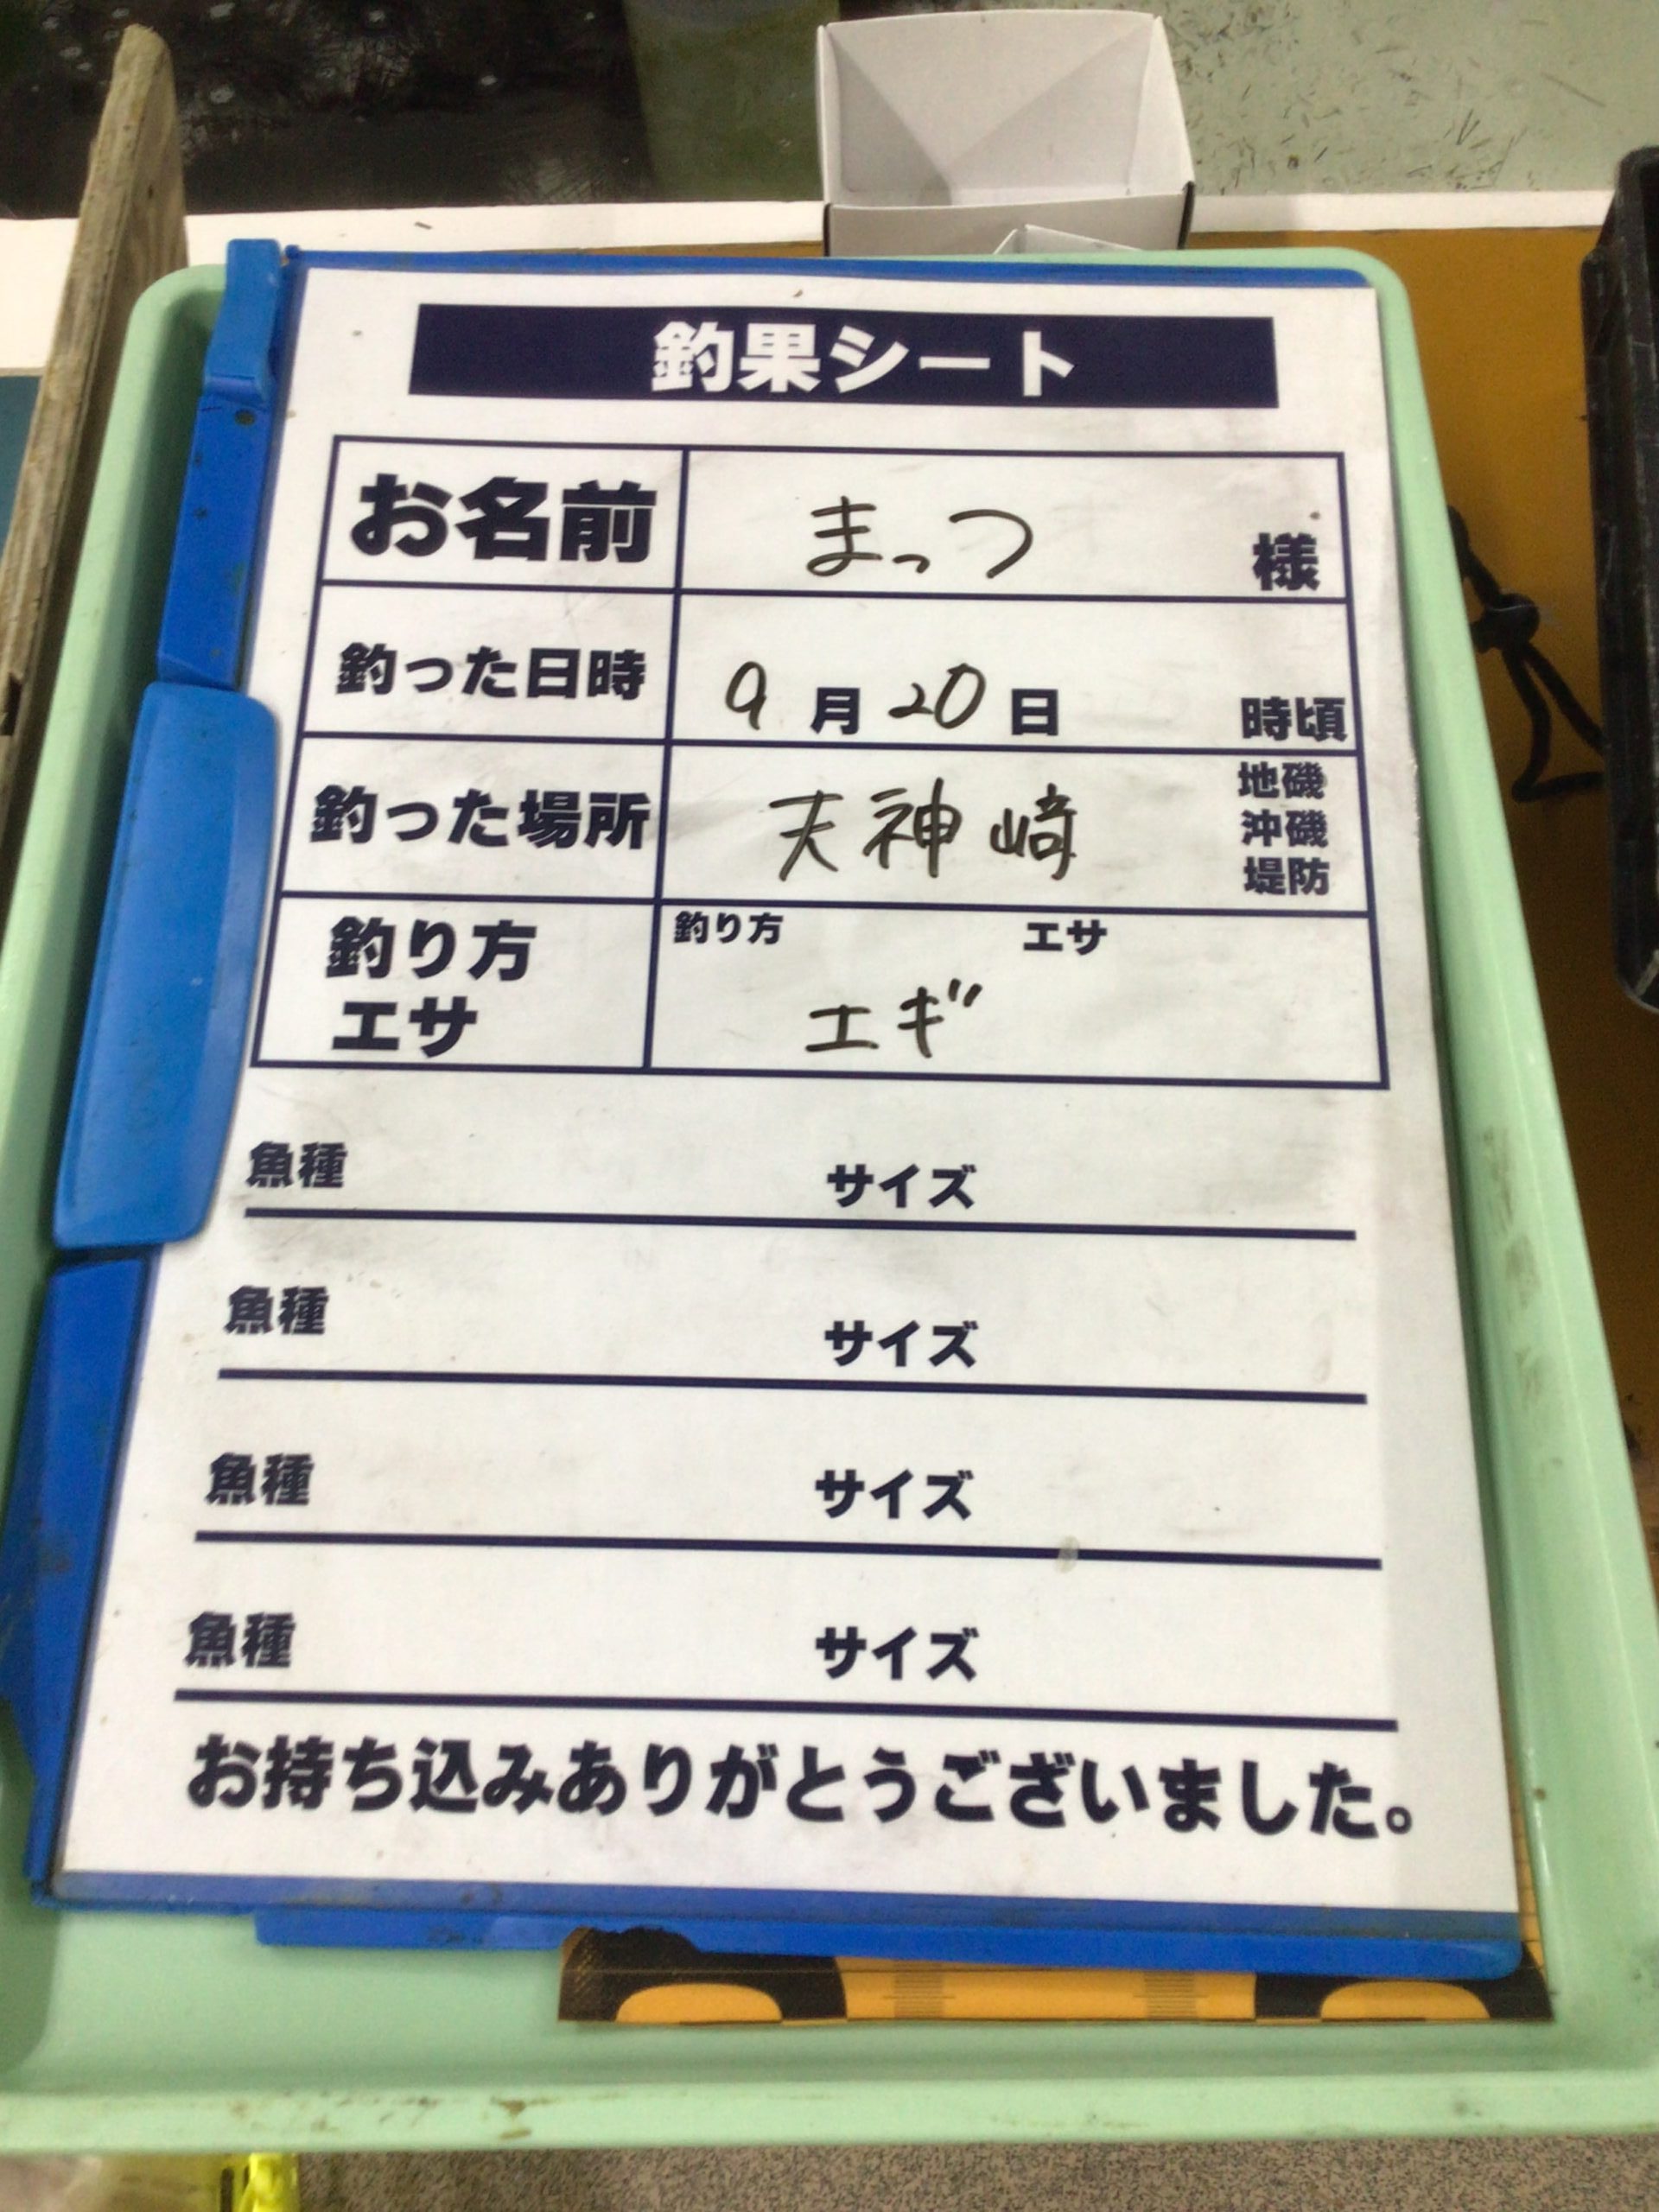 釣果シート
お名前 まっつ 様
釣った日時 9月20日 時頃
釣った場所 天神崎 地磯
沖磯
堤防
釣り方 エサ
釣り方 エサ
エギ
魚種 サイズ
魚種 サイズ
魚種 サイズ
魚種 サイズ
お持ち込みありがとうございました。